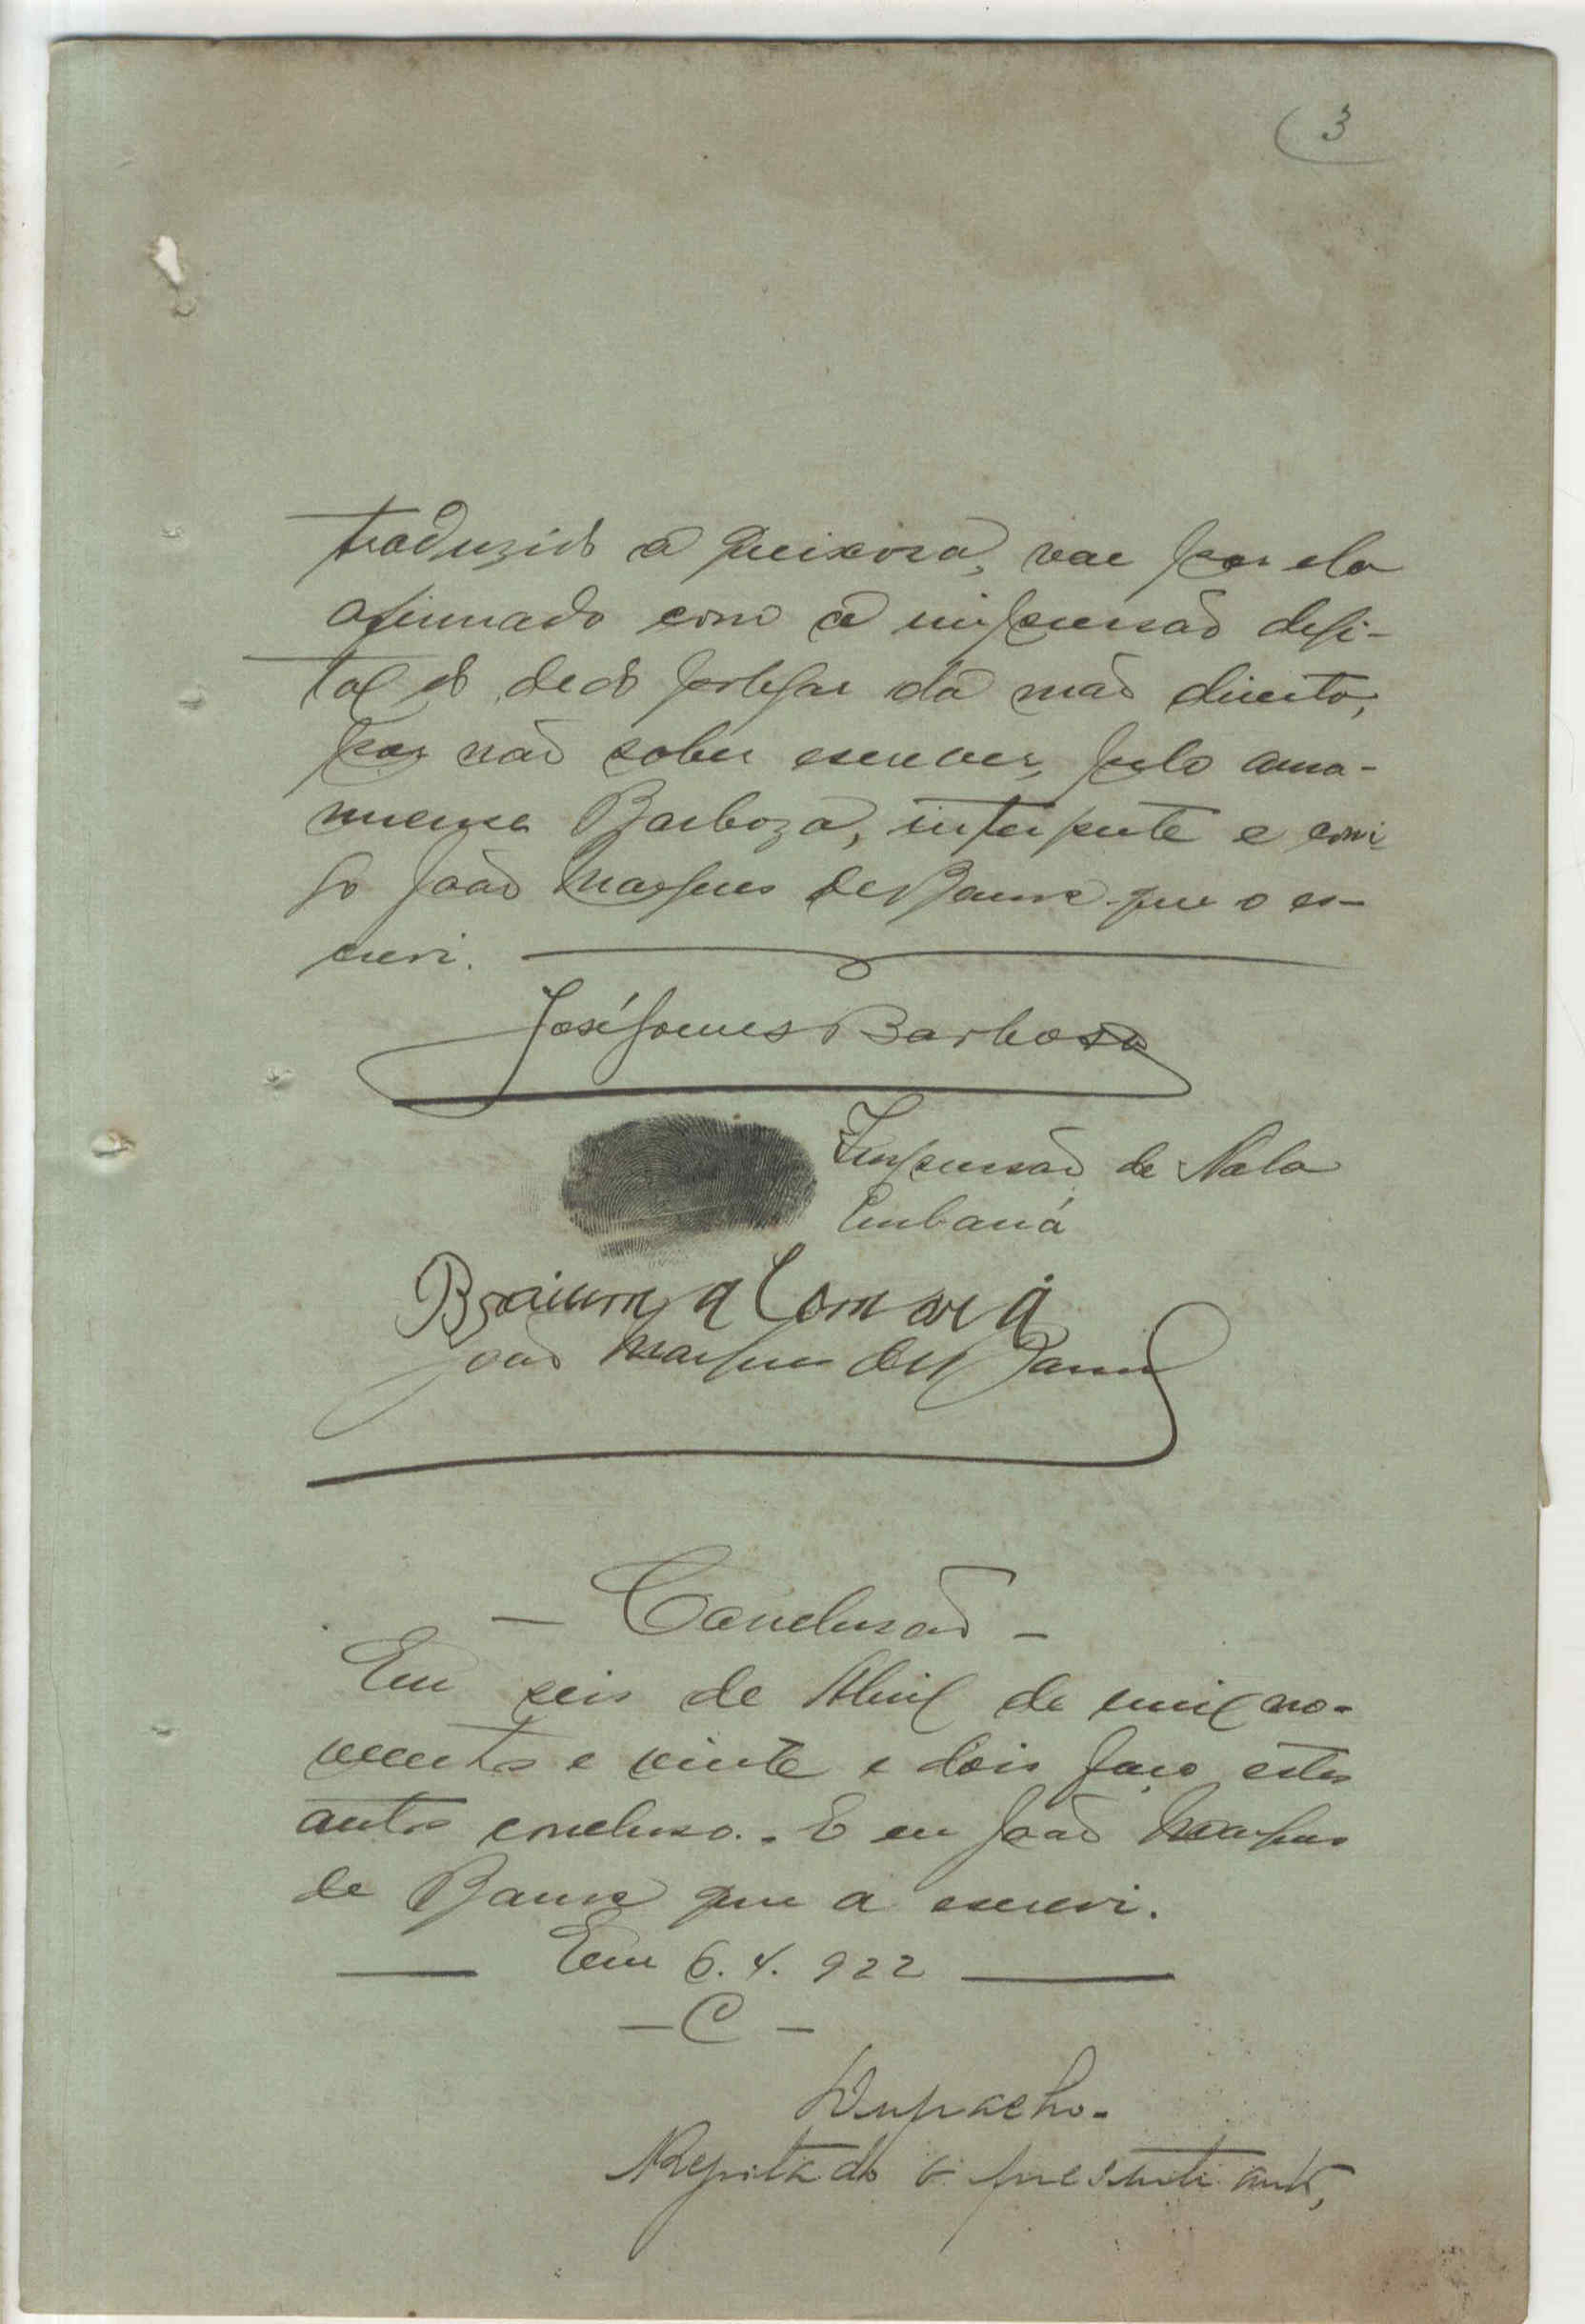 3
traduzido á queixosa, vae por ela
afirmado com a impressão degi-
tal do dedo polegar da mão direita,
por não saber escrever, pelo ama-
nuense Barboza, interprete e comi-
go João Marques de Barros que o es-
crevi.
José Gomes Barbosa
Impressão de Nala
Embaná
Braima Camará
João Marques de Barros
— Conclusão —
Em seis de Abril de mil no-
vecentos e vinte e dois faço estes
autos concluso. E eu João Marques
de Barros que a escrevi.
Em 6.4.922
— C —
Despacho.
Registado o presente auto,